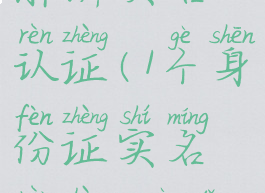 rèn zhèng gè shēn
认证(1个身
fèn zhèng shí míng
份证实名